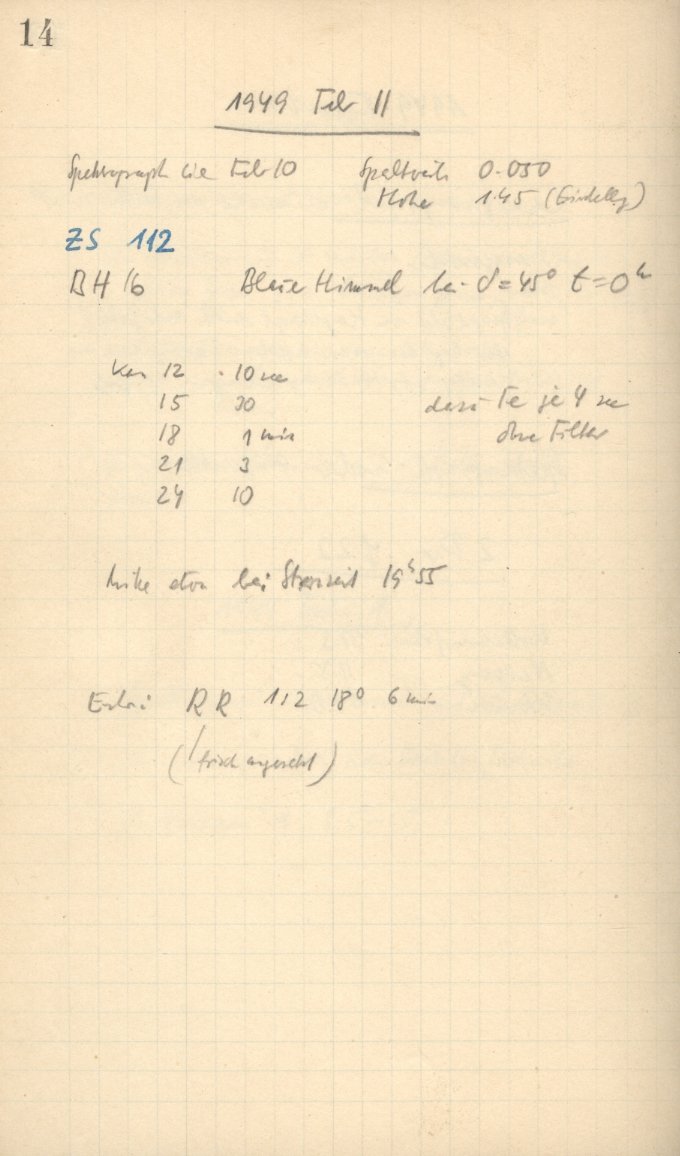 14
1949 Febr 11
Spektrograph wie Febr 10 Spaltweite 0.050
Höhe 1.45 (Einstellg)
ZS 112
BH 16 Blauer Himmel bei δ = 45° t = 0ʰ
Kas 12 10 sec
15 30
18 1 min
21 3
24 10
dazu Fe je 4 sec
ohne Filter
Mitte etwa bei Sternzeit 19ʰ55
Entw: RR 1:2 18° 6 min
(frisch angesetzt)